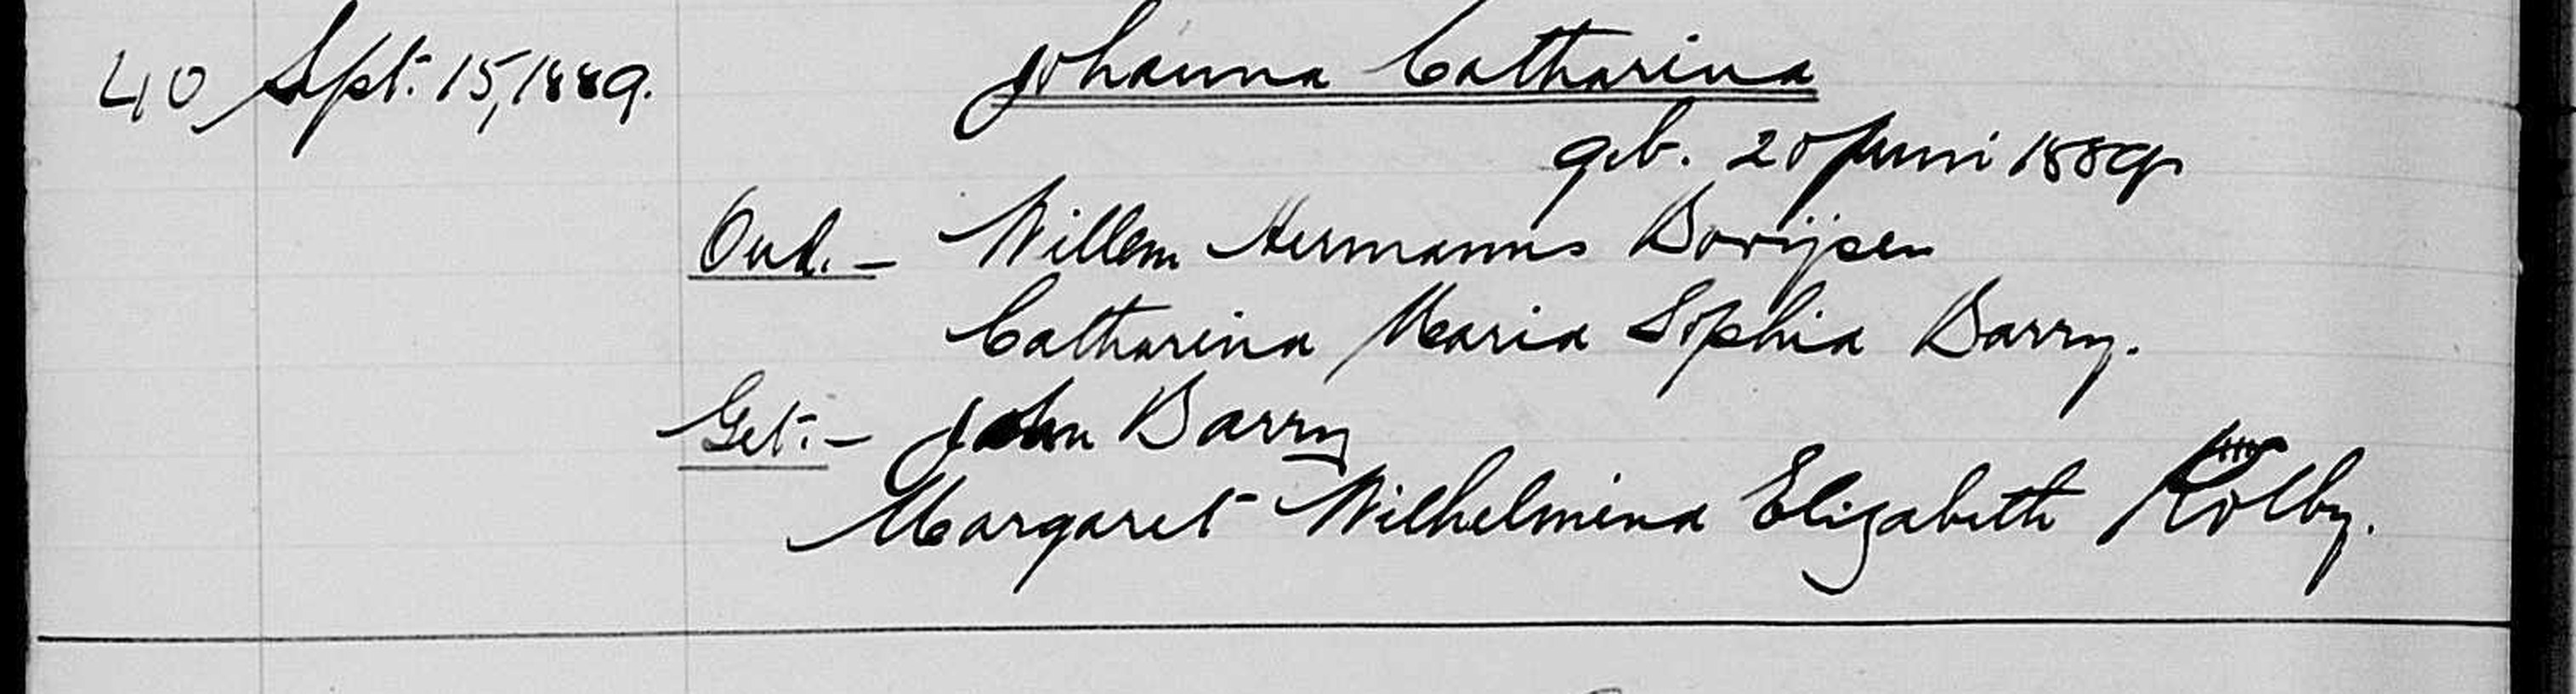 40 Sept. 15, 1889. Johanna Catharina
geb. 20 Juni 1889
Oud. - Willem Hermanus Borijsen
Catharina Maria Sophia Barry.
Get. - John Barry
Margaret Wilhelmina Elizabeth Kolby.